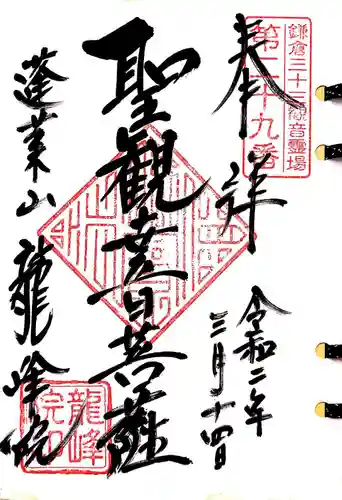 奉拝
鎌倉三十三観音霊場
第二十九番
令和二年
三月十四日
聖観世音菩薩
蓬莱山 龍峰院
龍峰
院印